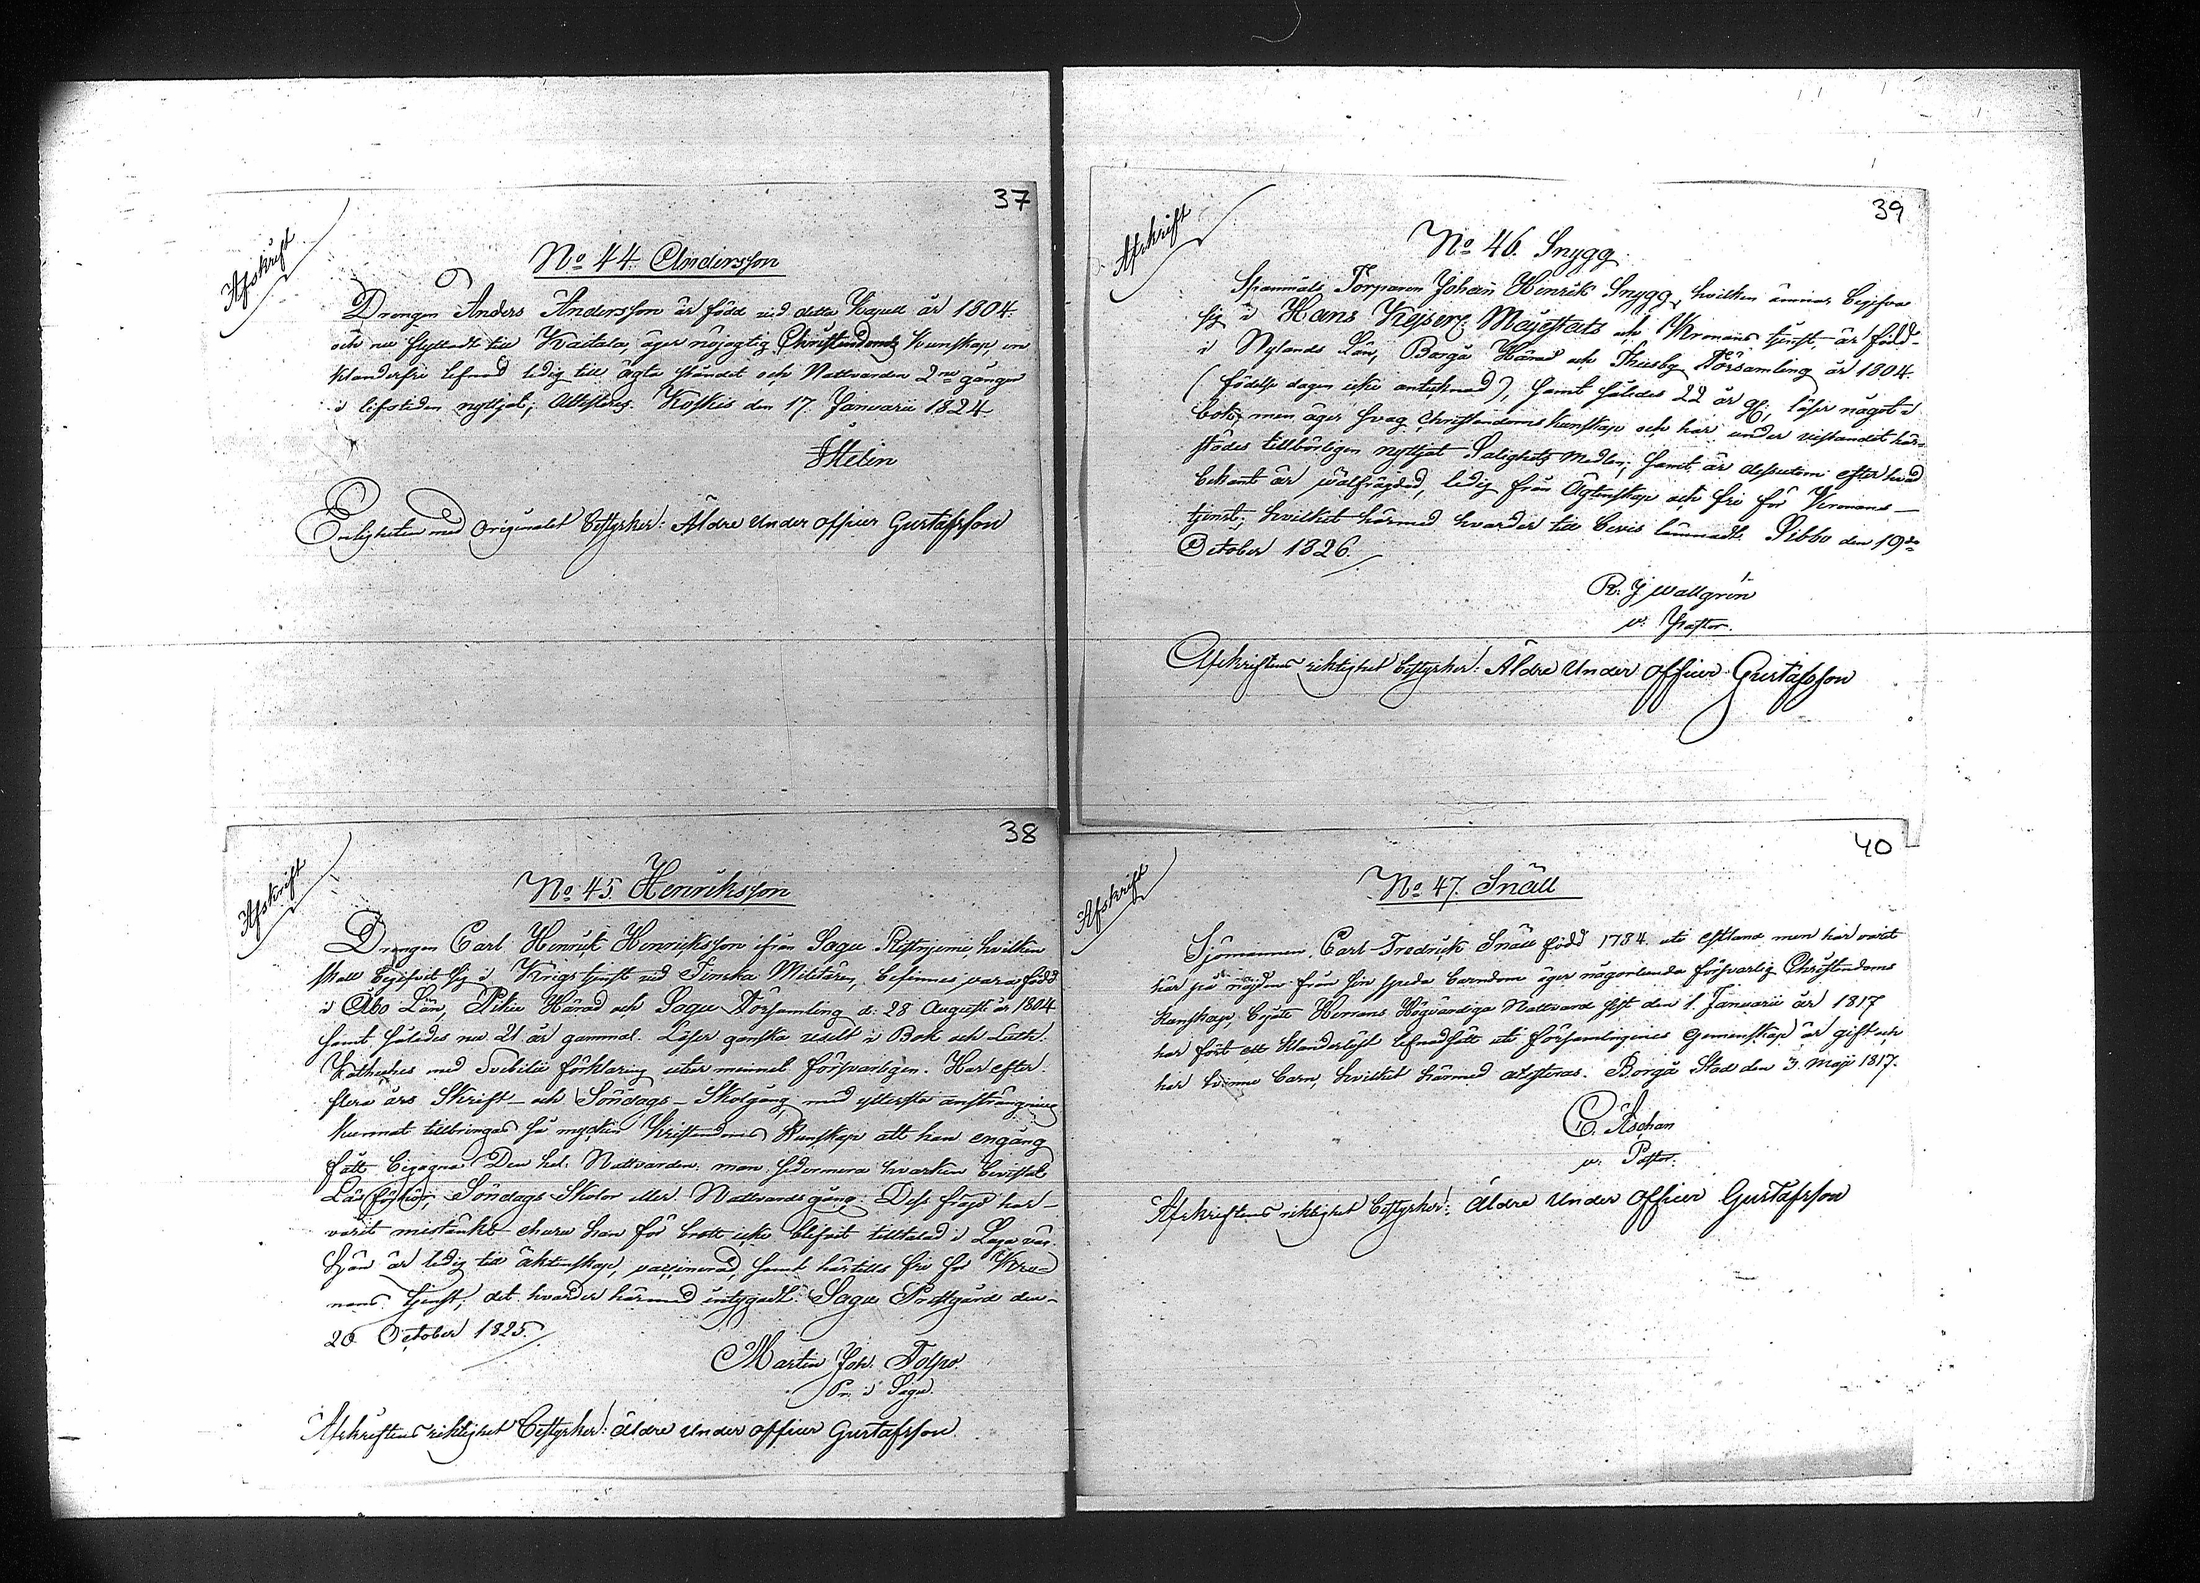 37
Afskrift
No 44. Andersson
Drengen Anders Andersson är född vid detta Kapell år 1804.
och nu flyttadt till Kaitala, äger nöjagtig Christendoms Kunskap, en
klanderfri lefnad ledig till ägta ståndet och Nattvarden 2ne gånger
i lifstiden nyttjat; Attesteras. Koskis den 17. Januarii 1824
Enligheten med Originalet bestyrker: Äldre Under officer Gustafsson
38
Afskrift
No 45. Henriksson
Drengen Carl Henrik Henriksson ifrån Sagu hvilken
skall begifvit sig i Krigs tjenst vid Finska Militären, befinnes vara född
i Åbo Län, Pikie Härad och Sagu Församling d: 28 Augusti år 1804
samt således nu 21 år gammal. Läser ganska uselt i Bok och Luth.
Kathekes med Svebilii förklaring utur minnet försvarligen. Har efter
flera års Skrift- och Söndags-Skolgång med ytterste ansträngning
kunnat tillbringas så mycken Kristendoms Kunskap att han engång
fått begagna Den hel. Nattvarden; men sedermera hvarken bevistat
Läsförhör, Söndags Skolor eller Nattvardsgång. Dess frägd har
varit misstänkt ehuru han för brott icke blifvit tilltalad i Laga väg.
Han är ledig till äktenskap, vaccinerad, samt härtills fri för Kro-
nans tjenst; det hvarder härmed intygadt. Sagu Prestgård den
20 October 1825.
Martin Joh. Tolpo
Pr. i Sagu.
Afskriftens riktighet bestyrker: Äldre Under officer Gustafsson
39
Afskrift
No 46. Snygg
Torparen Johan Henrik Snygg, hvilken ämnar begifva
sig i Hans Kejserl. Majestäts och Kronans tjenst, är född
i Nylands Län, Borgå Härad och Thusby Församling år 1804.
(födelse dagen icke antecknad), samt således 22 år gl, läser något i
bok, men äger svag Christendoms kunskap och har under vistandet här-
städes tillbörligen nyttjat Salighets Medlen; samt är dessutom efter hvad
bekant är välfrägdad, ledig från Ägtenskap och fri för Kronans
tjenst; hvilket härmed hvarder till bevis lämnadt. Sibbo den 19de
October 1826.
R. J Wallgrén
v: Pastor.
Afskriftens riktighet bestyrker: Äldre Under officer Gustafsson
40
Afskrift
No 47. Snäll
Sjömannen Carl Fredrik Snäll född 1784 uti Estland men har varit
här på nejden från sin späda barndom äger någorlunda försvarlig Christendoms
kunskap, begått Herrans Högvärdiga Nattvard sist den 1 Januarii år 1817
har fört ett klanderlöst lefnadssätt uti församlingenes Gemenskap är gift och
har tvenne barn, hvilket härmed attesteras. Borgå Stad den 3. Maji 1817.
C. Aschan
v: Pastor.
Afskriftens riktighet bestyrker: Äldre Under officer Gustafsson